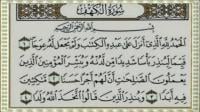 سُورَةُ الكَهْفِ
بِسْمِ اللَّهِ الرَّحْمَٰنِ الرَّحِيمِ
الْحَمْدُ لِلَّهِ الَّذِي أَنزَلَ عَلَىٰ عَبْدِهِ الْكِتَٰبَ وَلَمْ يَجْعَل لَّهُ عِوَجًا ۝١
قَيِّمًا لِّيُنذِرَ بَأْسًا شَدِيدًا مِّن لَّدُنْهُ وَيُبَشِّرَ الْمُؤْمِنِينَ الَّذِينَ
يَعْمَلُونَ الصَّٰلِحَٰتِ أَنَّ لَهُمْ أَجْرًا حَسَنًا ۝٢ مَّٰكِثِينَ
فِيهِ أَبَدًا ۝٣ وَيُنذِرَ الَّذِينَ قَالُوا اتَّخَذَ اللَّهُ وَلَدًا ۝٤